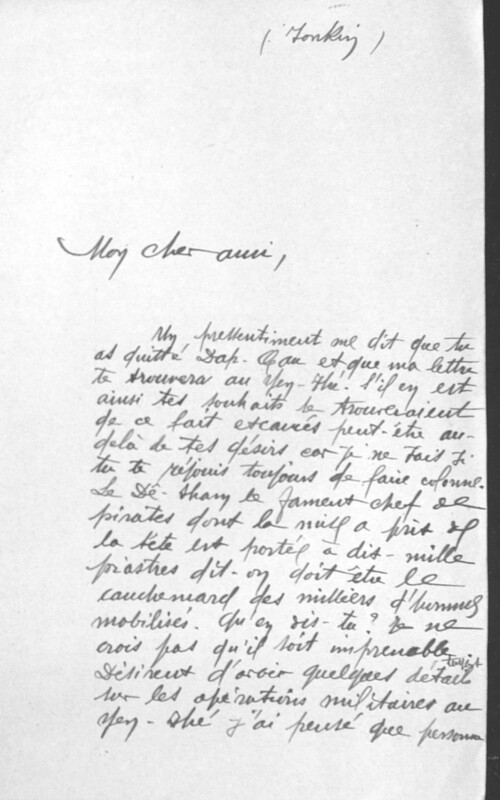 (Tonkin)
Mon cher ami,
Un pressentiment me dit que tu
as quitté Dap-Cau et que ma lettre
te trouvera au Yen-Thé. S'il en est
ainsi tes souhaits se trouveraient
de ce fait exaucés peut-être au-
delà de tes désirs car je ne sais si
tu te réjouis toujours de faire colonne.
Le Dê-Tham le fameux chef de
pirates dont la mise à prix de
la tête est portée à dix-mille
piastres dit-on doit être le
cauchemard des milliers d'hommes
mobilisés. Qu'en dis-tu? Je ne
crois pas qu'il soit imprenable
Désirant d'avoir quelques détails
sur les opérations militaires au
Yen-Thé j'ai pensé que personne